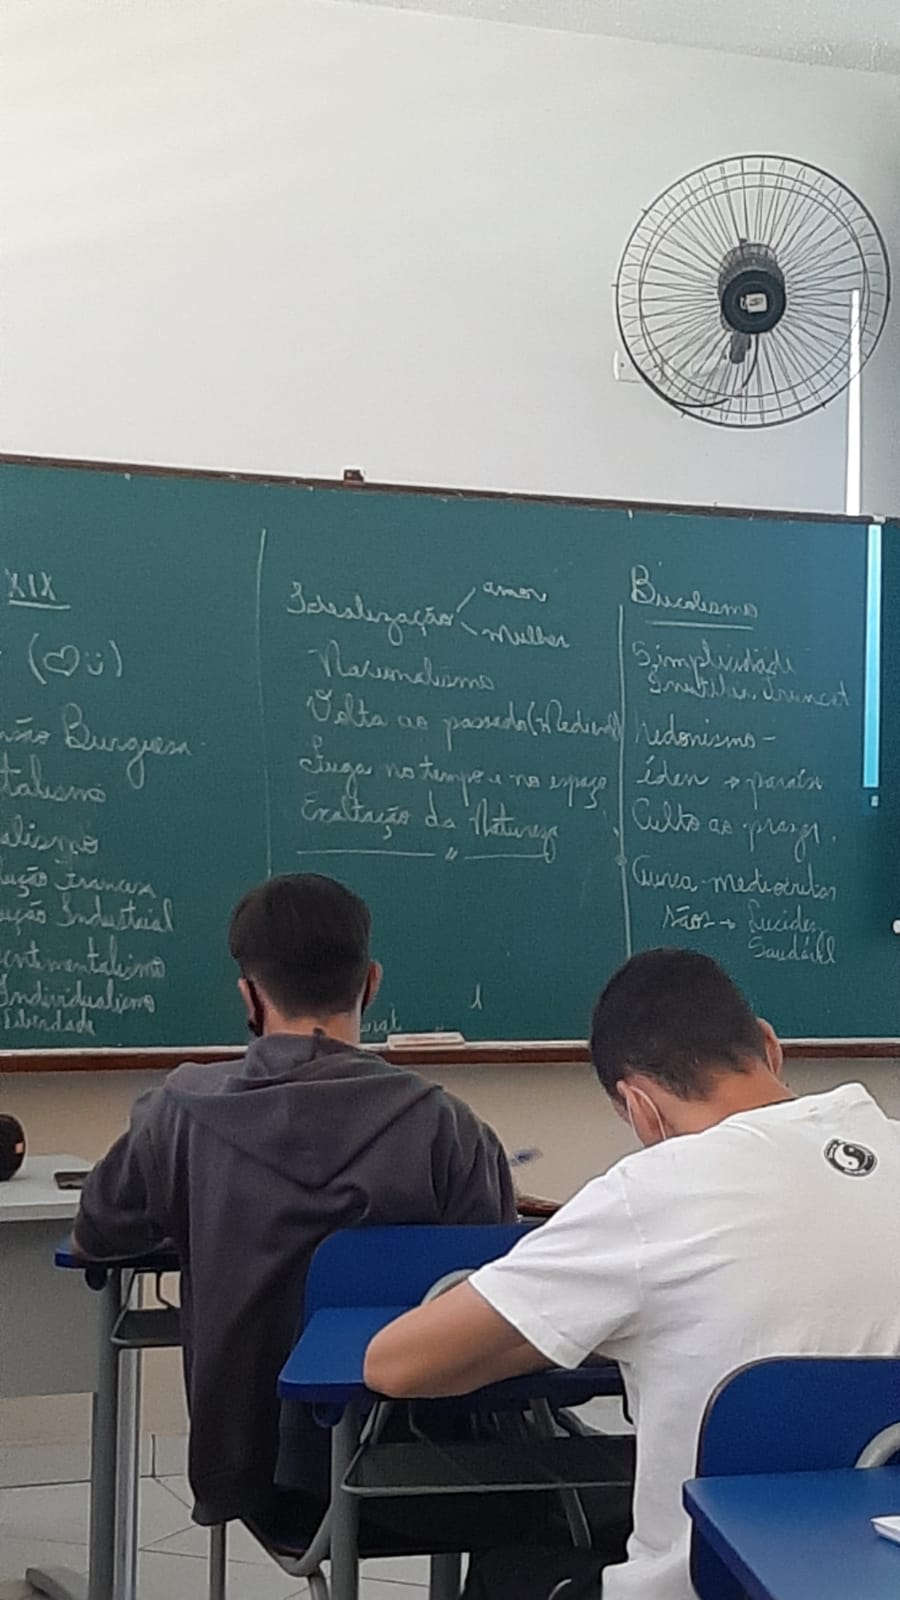 XIX
Burguesa
Francesa
Industrial
Sentimentalismo
Individualismo
Liberdade
Idealização amor
mulher
Nacionalismo
Volta ao passado (Medieval)
Fuga no tempo e no espaço
Exaltação da Natureza
Bucolismo
Simplicidade
Inutilia Truncat
hedonismo -
éden → paraíso
Culto ao prazer.
Aurea mediocritas
Lucidez
Saudável